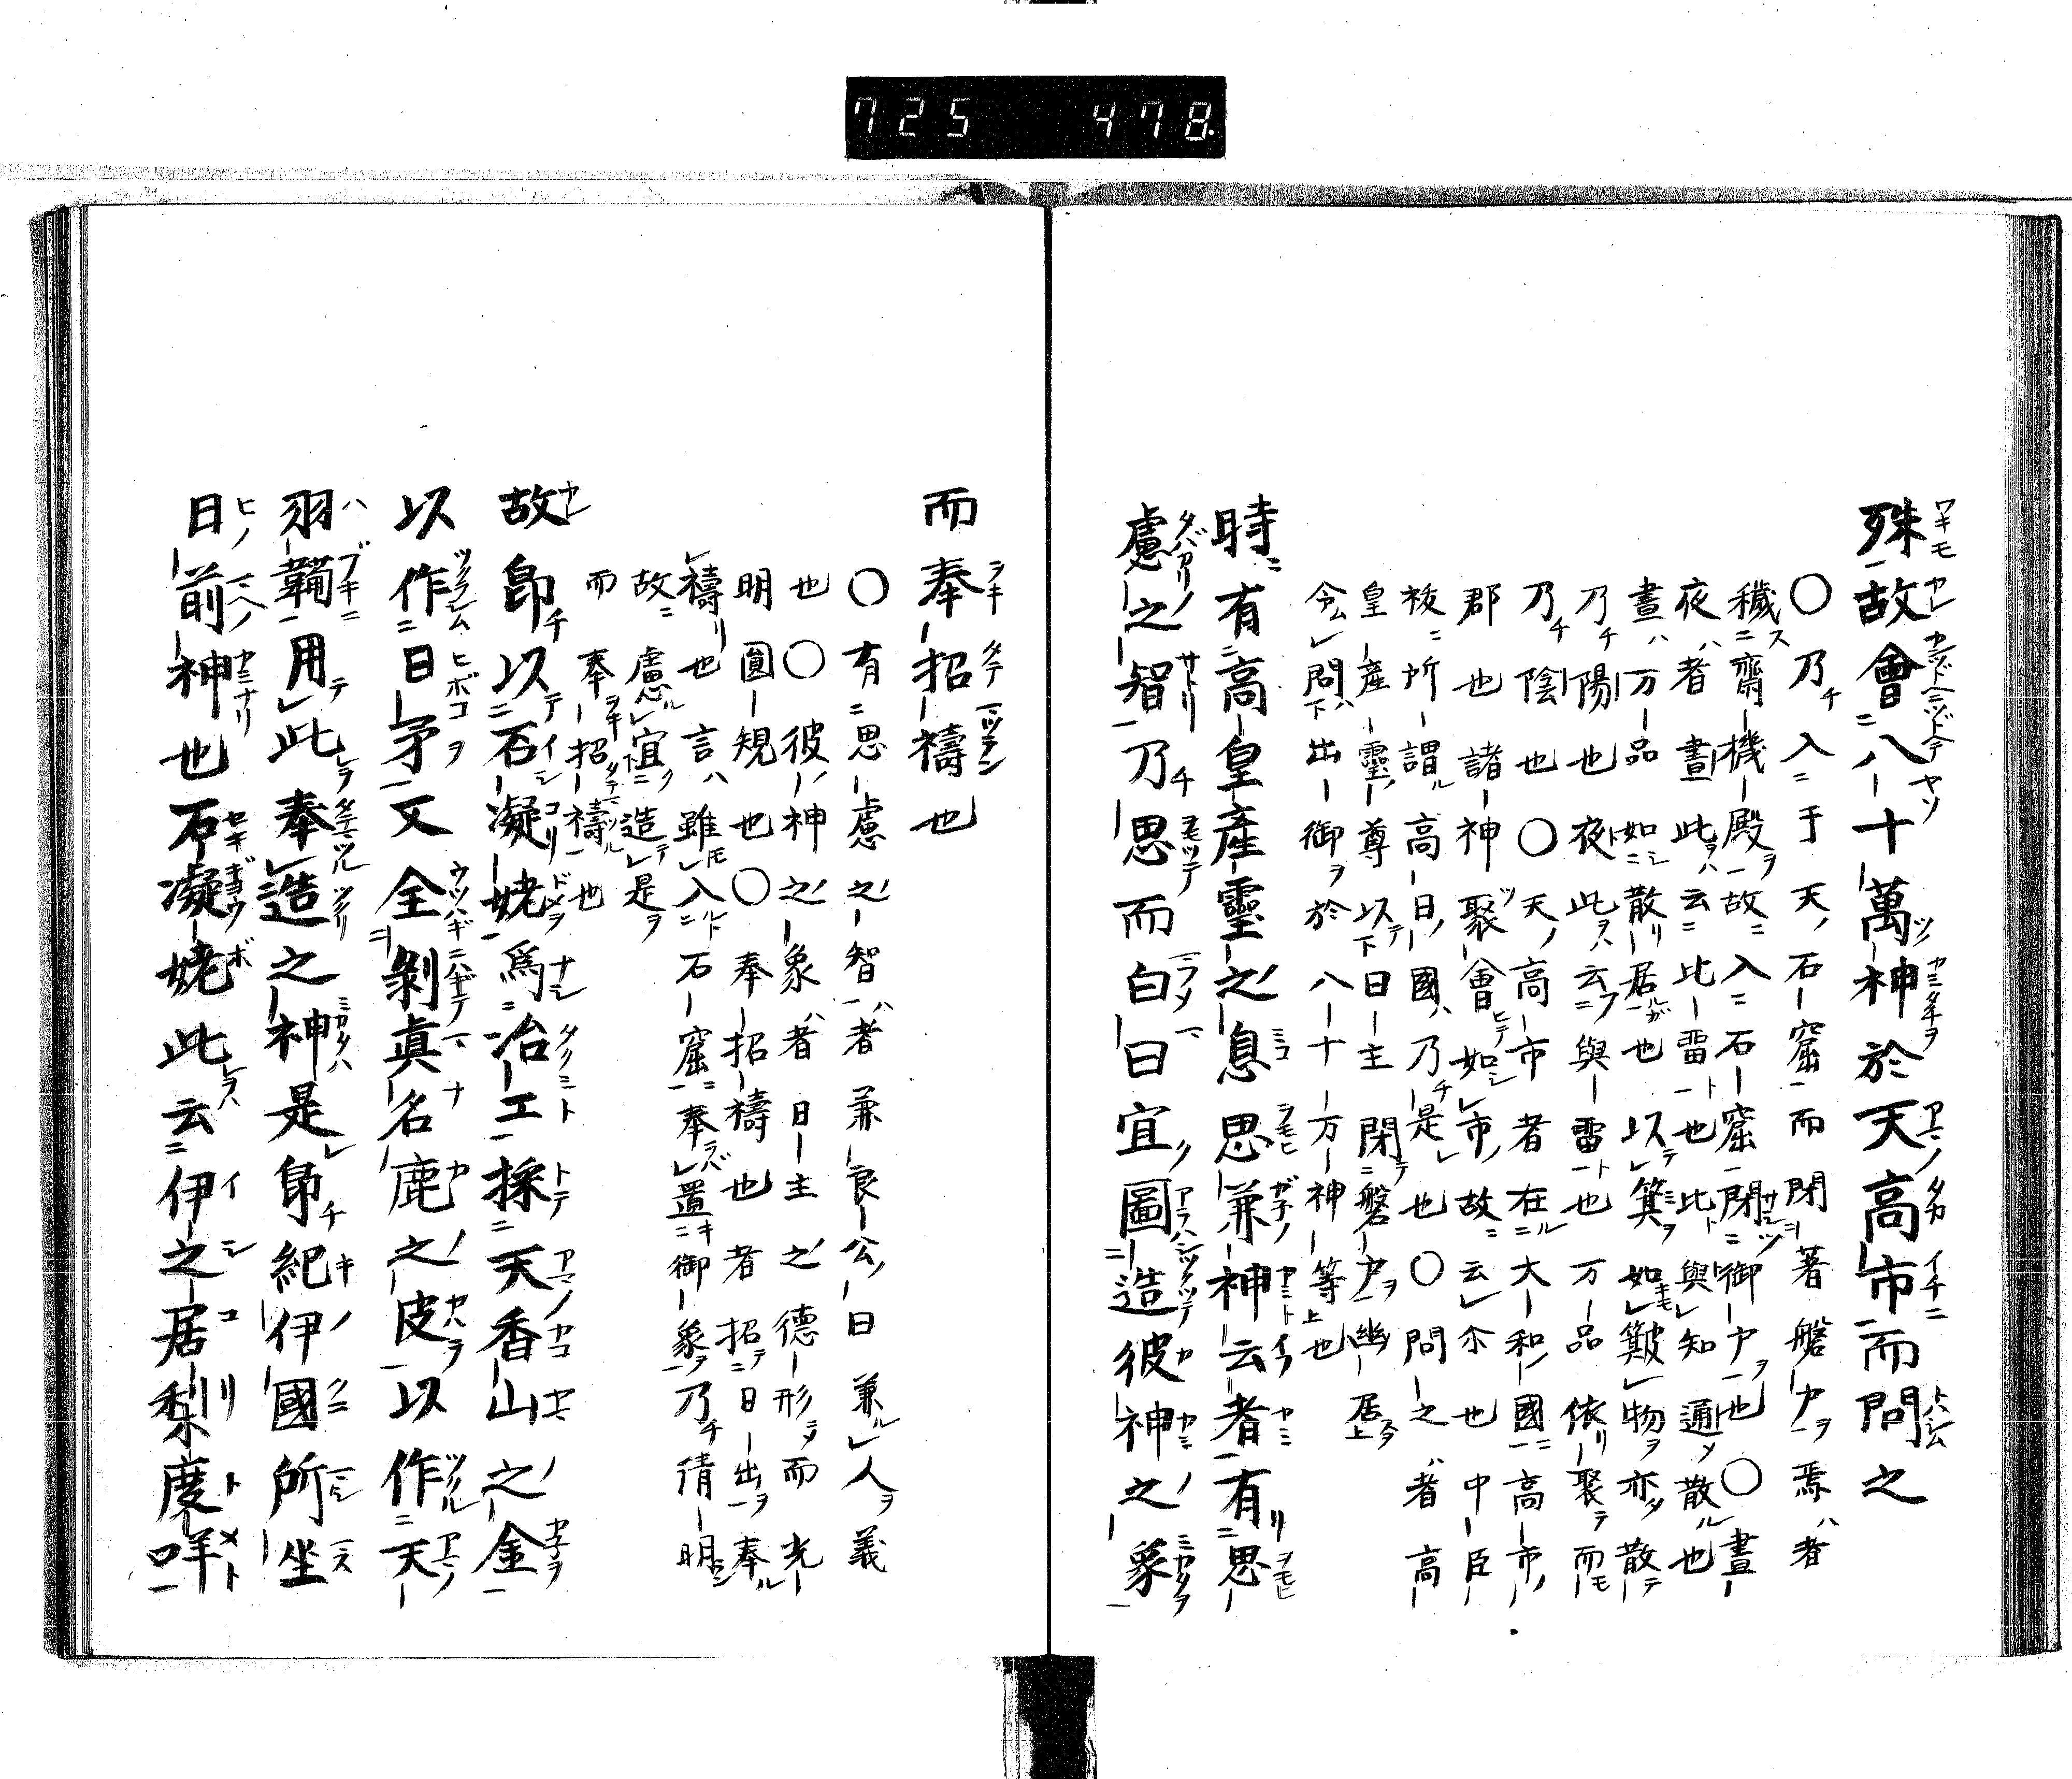 725 478
殊故會八十萬神於天高市而問之
〇乃入于天石窟而閉著磐戸焉者
穢齋機殿故入石窟閉御戸也〇晝
夜者晝此云比雷也比與知通散也
晝万品如散居也以箕如簸物亦散
乃陽也夜此云與雷也万品依聚而
乃陰也〇天高市者在大和國高市
郡也諸神聚會如市故云尒也中臣
祓所謂高日國乃是也〇問之者高
皇産靈尊以日主閉磐戸幽居
令問出御於八十万神等也
時有高皇產靈之息思兼神云者有思
慮之智乃思而白曰宜圖造彼神之象
而奉招禱也
〇有思慮之智者兼良公曰兼人義
也〇彼神之象者日主之德形而光
明圓規也〇奉招禱也者招日出奉
禱也言雖入石窟奉置御象乃倩明
故慮宜造是
而奉招禱也
故卽以石凝姥爲冶工採天香山之金
以作日矛又全剝眞名鹿之皮以作天
羽鞴用此奉造之神是卽紀伊國所坐
日前神也石凝姥此云伊之居梨度咩